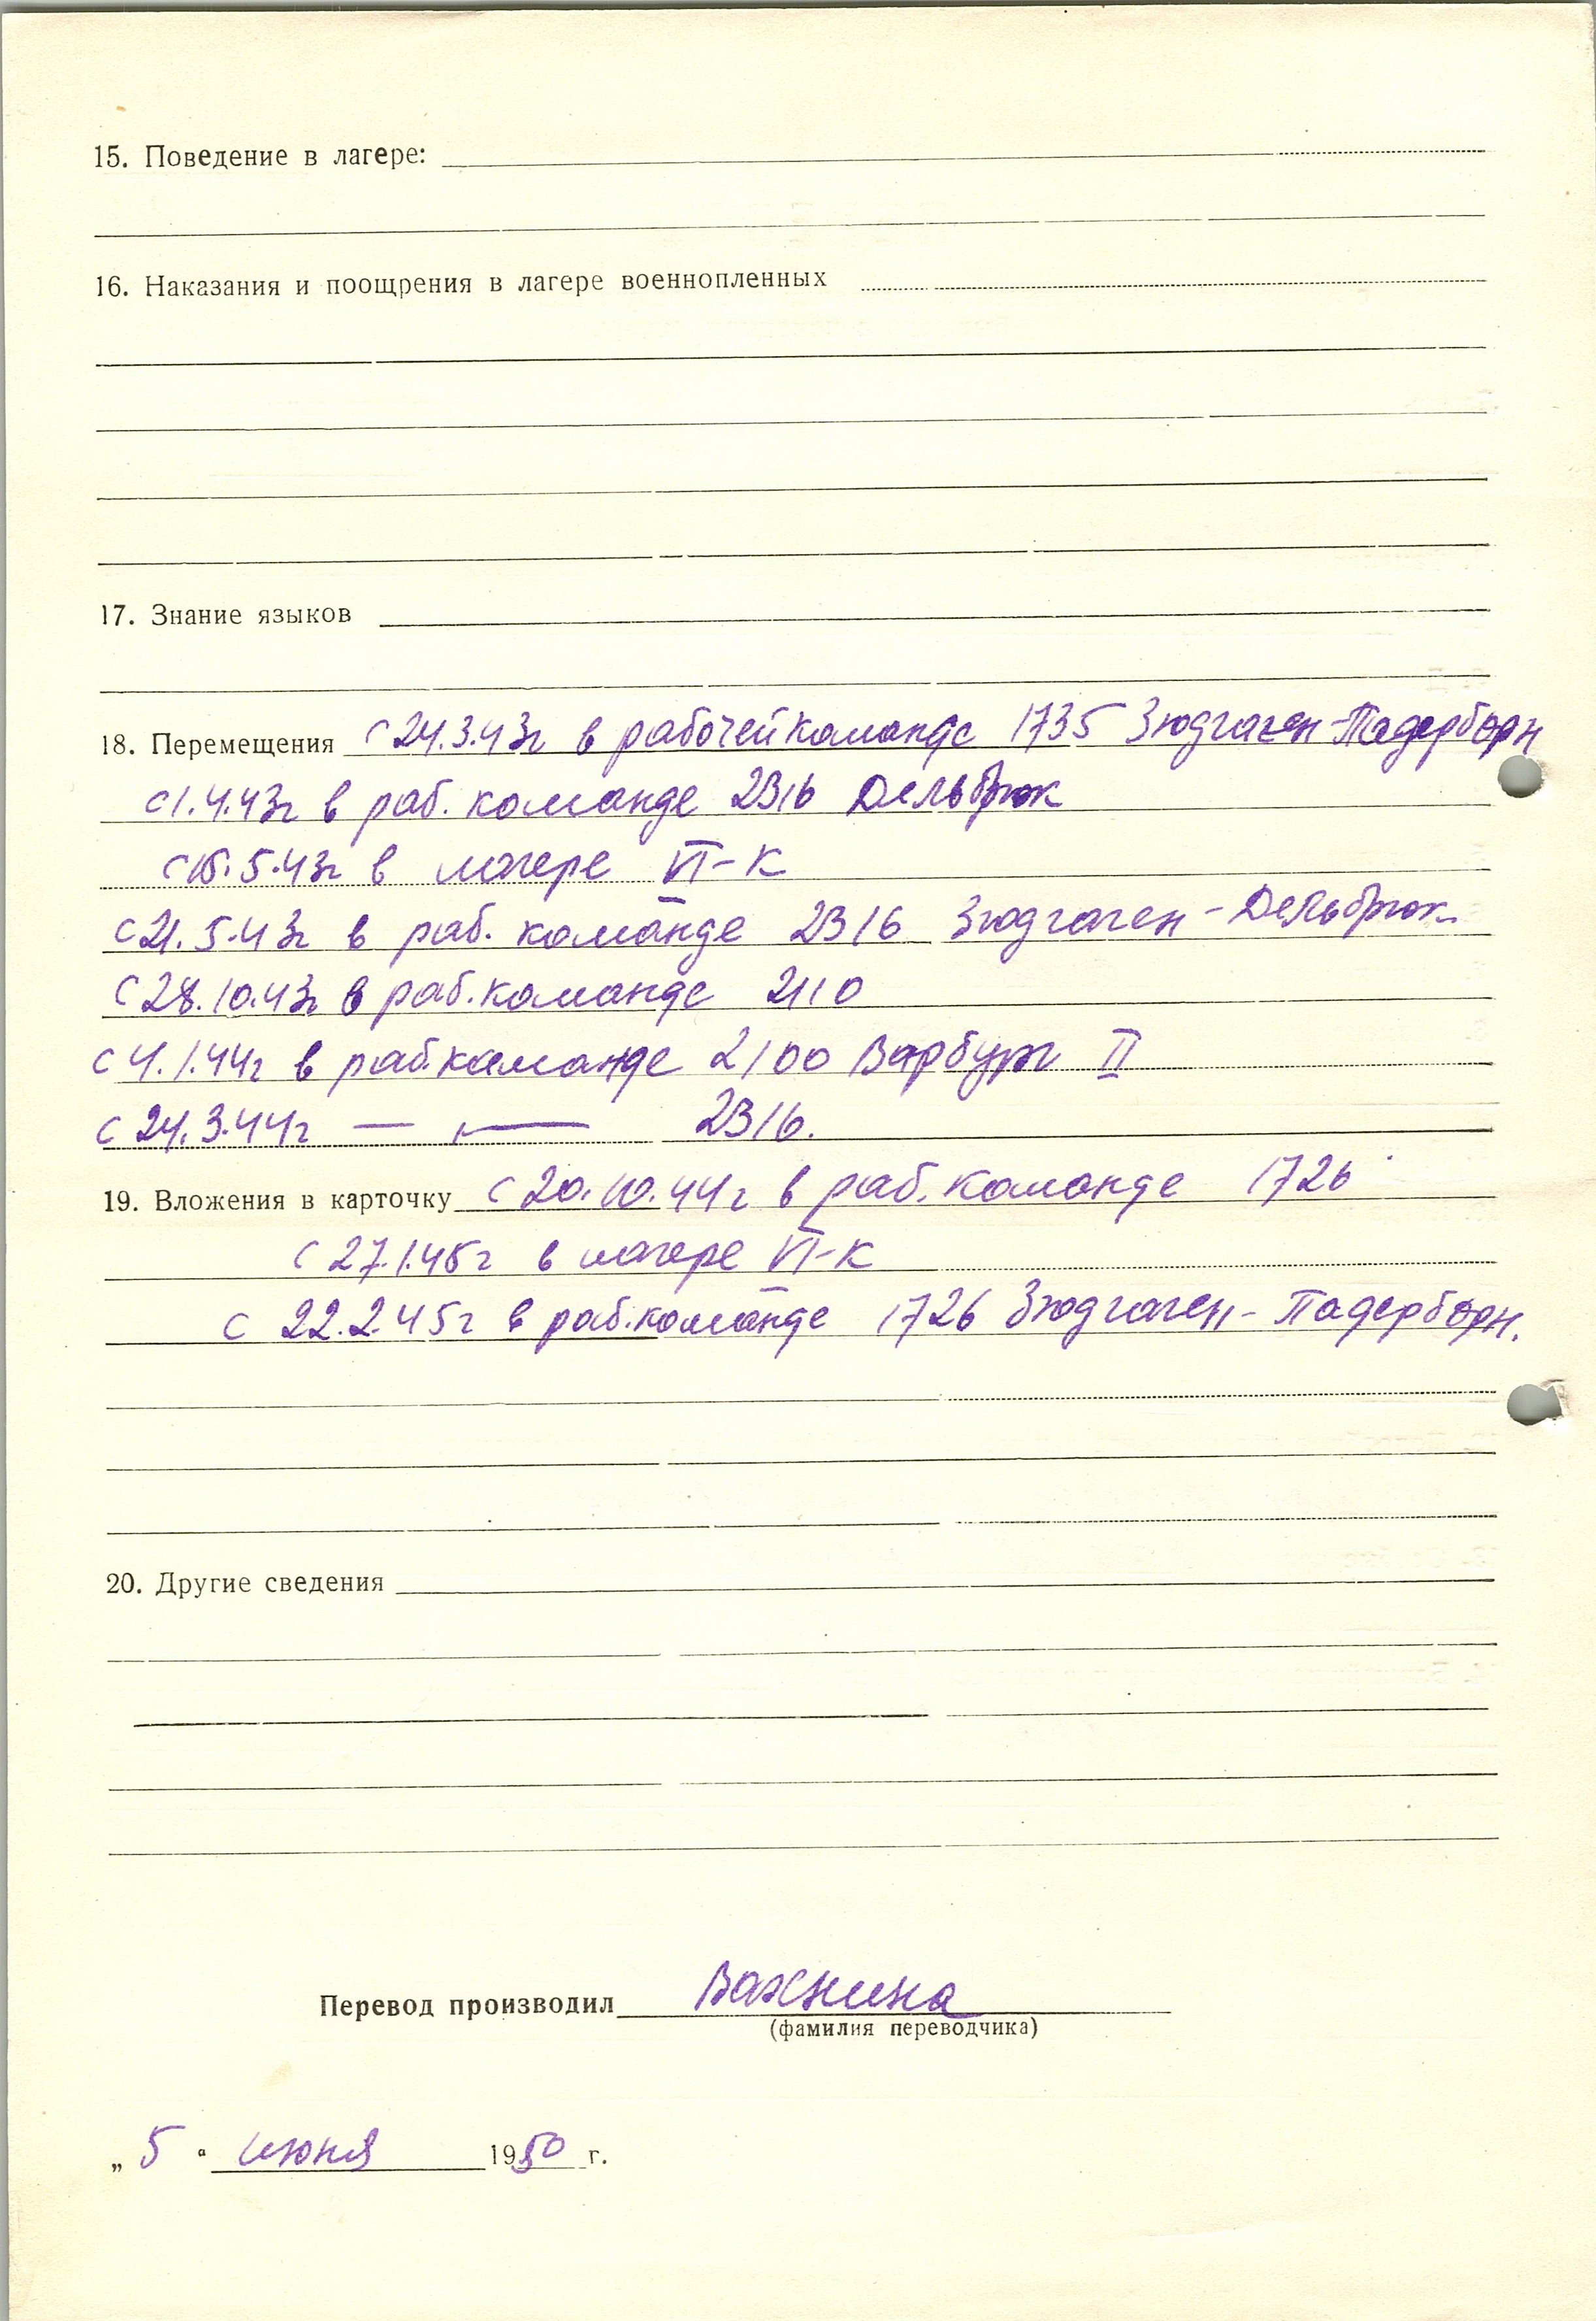 15. Поведение в лагере:
16. Наказания и поощрения в лагере военнопленных
17. Знание языков
18. Перемещения с 24.3.43г в рабочей команде 1735 Зюдгаген-Падерборн
с 1.4.43г в раб. команде 2316 Дельбрюк
с 15.5.43г в лагере VI-К
с 21.5.43г в раб. команде 2316 Зюдгаген-Дельбрюк
с 28.10.43г в раб. команде 2110
с 4.1.44г в раб. команде 2100 Варбург II
с 24.3.44г — — 2316.
19. Вложения в карточку с 20.10.44г в раб. команде 1726
с 27.1.45г в лагере VI-К
с 22.2.45г в раб. команде 1726 Зюдгаген-Падерборн.
20. Другие сведения
Перевод производил Важнина
(фамилия переводчика)
„ 5 “ июня 1950 г.